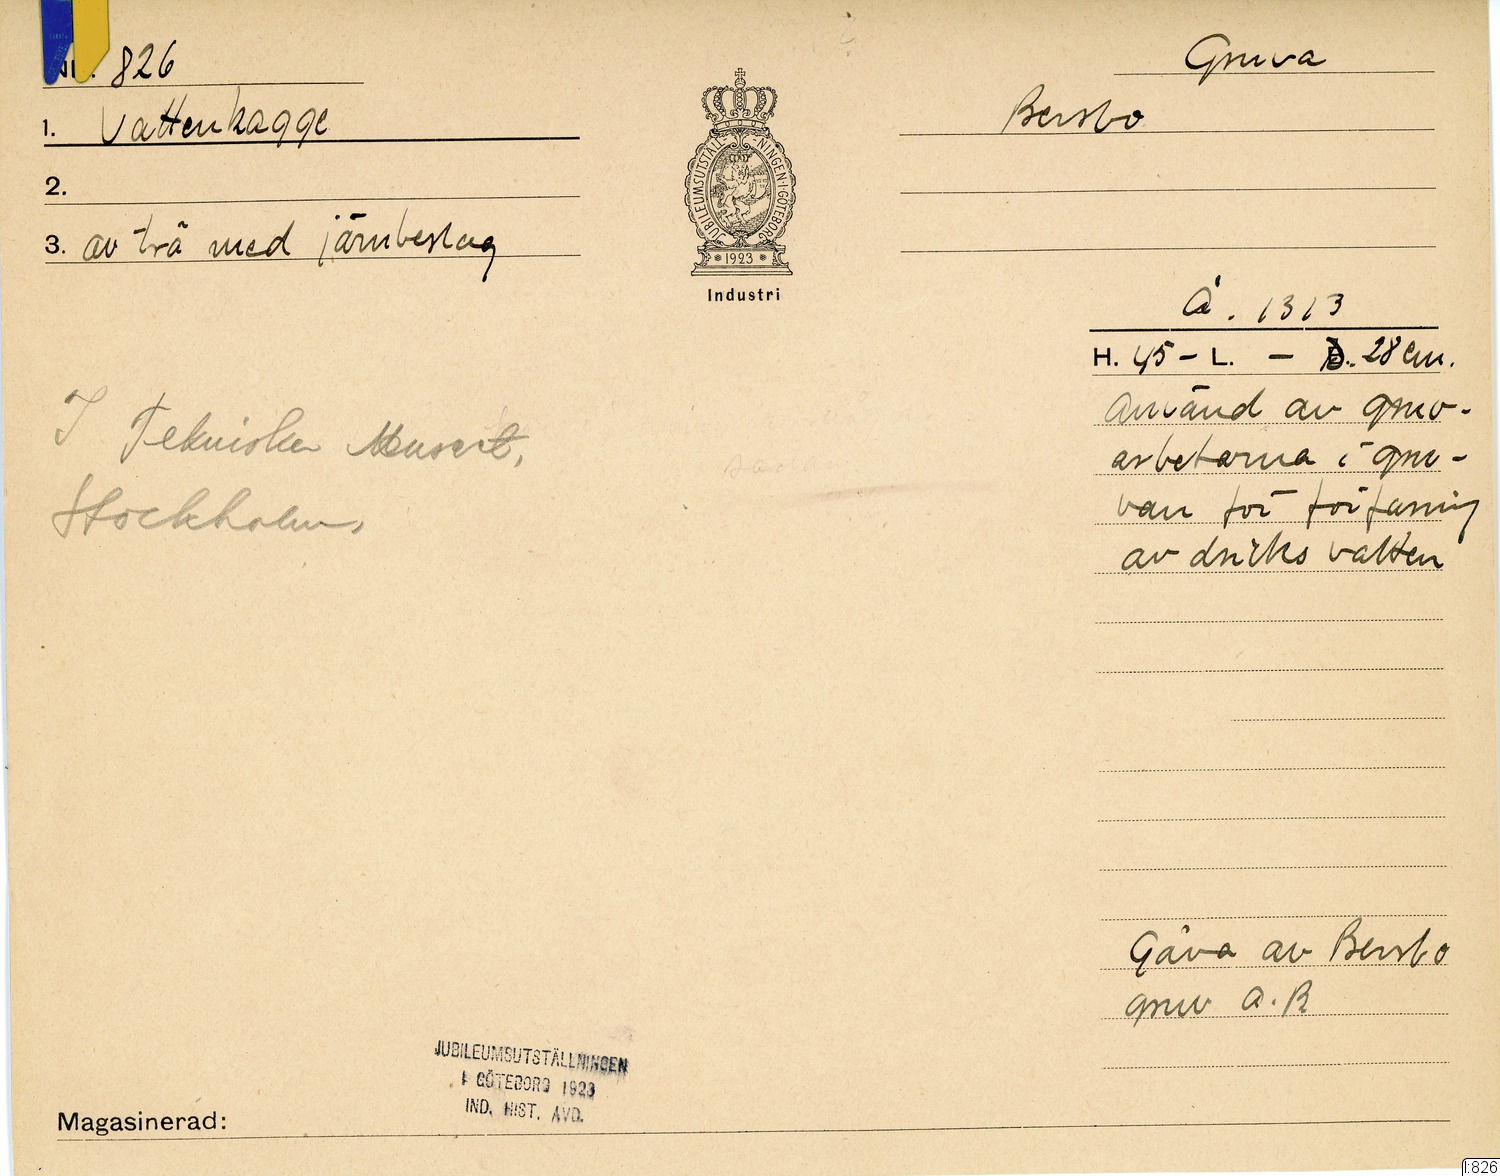 Nr. 826
Gruva
1. Vattenkagge
Bersbo
2.
3. av trä med järnbeslag
JUBILEUMSUTSTÄLLNINGEN·I·GÖTEBORG
1923
Industri
Å. 1313
H. 45 - L. - D. 28 cm.
Använd av gruv-
arbetarna i gru-
van för förfaring
av dricksvatten
I Tekniska Museet,
Stockholm.
Gåva av Bersbo
gruv A.B
JUBILEUMSUTSTÄLLNINGEN
I GÖTEBORG 1923
IND. HIST. AVD.
Magasinerad:
I:826